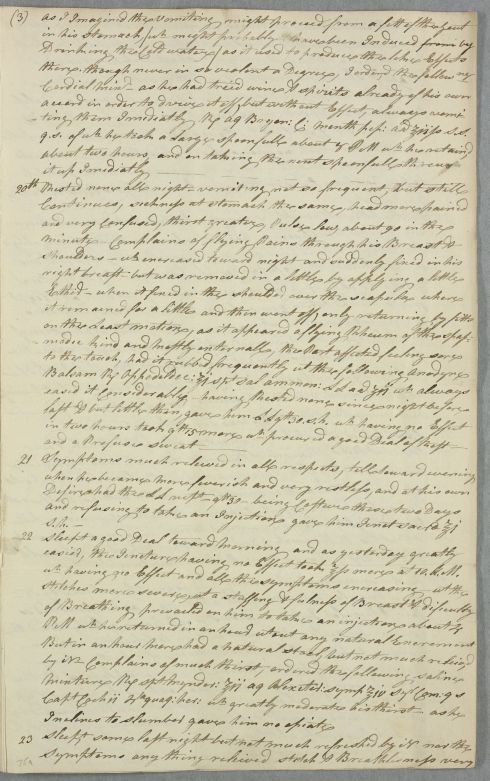 (3) as I Imagined the vomiting might proceed from a fitt of the Gout
in his Stomach wt. might probably have been Induced from by
Drinking the Cold water, as it used to produce the like Effects
there, though never in so violent a Degree, I ordered the following
Cordial mixt. as he had tried wine & spirits already of his own
accord in order to drive it off, but without Effect, always vomi-
ting them Imediatly Rx aq
q.s. of wt. he took a large spoonfull about 4 PM wt. he retaind
about two hours, and on taking the next spoonfull threw
it up Imediatly
20th Rested none all night - vomiting not so frequent, but still
Continues, sickness at stomach the same, head more pained
and very Confused, thirst greater, Pulse low about 90 in the
minute - Complains of flying Pains through his Breast &
Shoulders - wt. increased toward night and suddenly fixed in his
right breast - but was removed in a little by applying a little
Ether - when it fixed in the shoulder over the scapula where
it remained for a little and then went off, only returning by fitts
on the Least motion, as it appeared a flying Rheum of the spas-
modic kind and mostly internal, the Part affected feeling sore
to the touch, had it rubbed frequently wt. the following Anodyne
Balsam Rx Opodeldoc: ammon: wt. always
eased it Considerably - having Rested none since night before
last & but little then gave him wt. having no Effect
in two hours took 15 more wt. procured a good Deal of Rest
and a Profuse sweat
21 Symptoms much relieved in all respects, till toward evening
when he became more feverish and very restless, and at his own
Desire had the being Costive these two Days
and refusing to take an Injection gave him
22 Sleept a good Deal toward morning and as yesterday greatly
easied, the having no Effect took more at 10 A.M.
wt. having no Effect and all the symptoms increasing, wt. the
stitches more severe, wt. a stuffing & fulness of Breast & difficulty
of Breathing prevailed on him to take an injection about 4
PM wt. he returned in an houd wtout any natural Excrement
But in an hour more had a natural stool, but not much relieved
by it Complains of much thirst, ordered the following saline
mixture Rx
wt. greatly moderate his thirst - as he
Inclines to slumber gave him no opiate
23 Sleept some last night but not much refreshed by it nor the
Symptoms any thing relieved, stitch & Breathlesness very